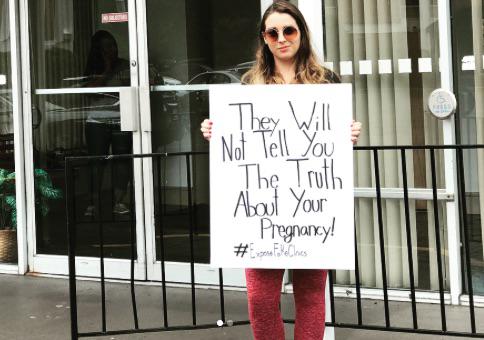 NO SOLICITING
They Will
Not Tell You
The Truth
About Your
Pregnancy!
#ExposeFakeClinics